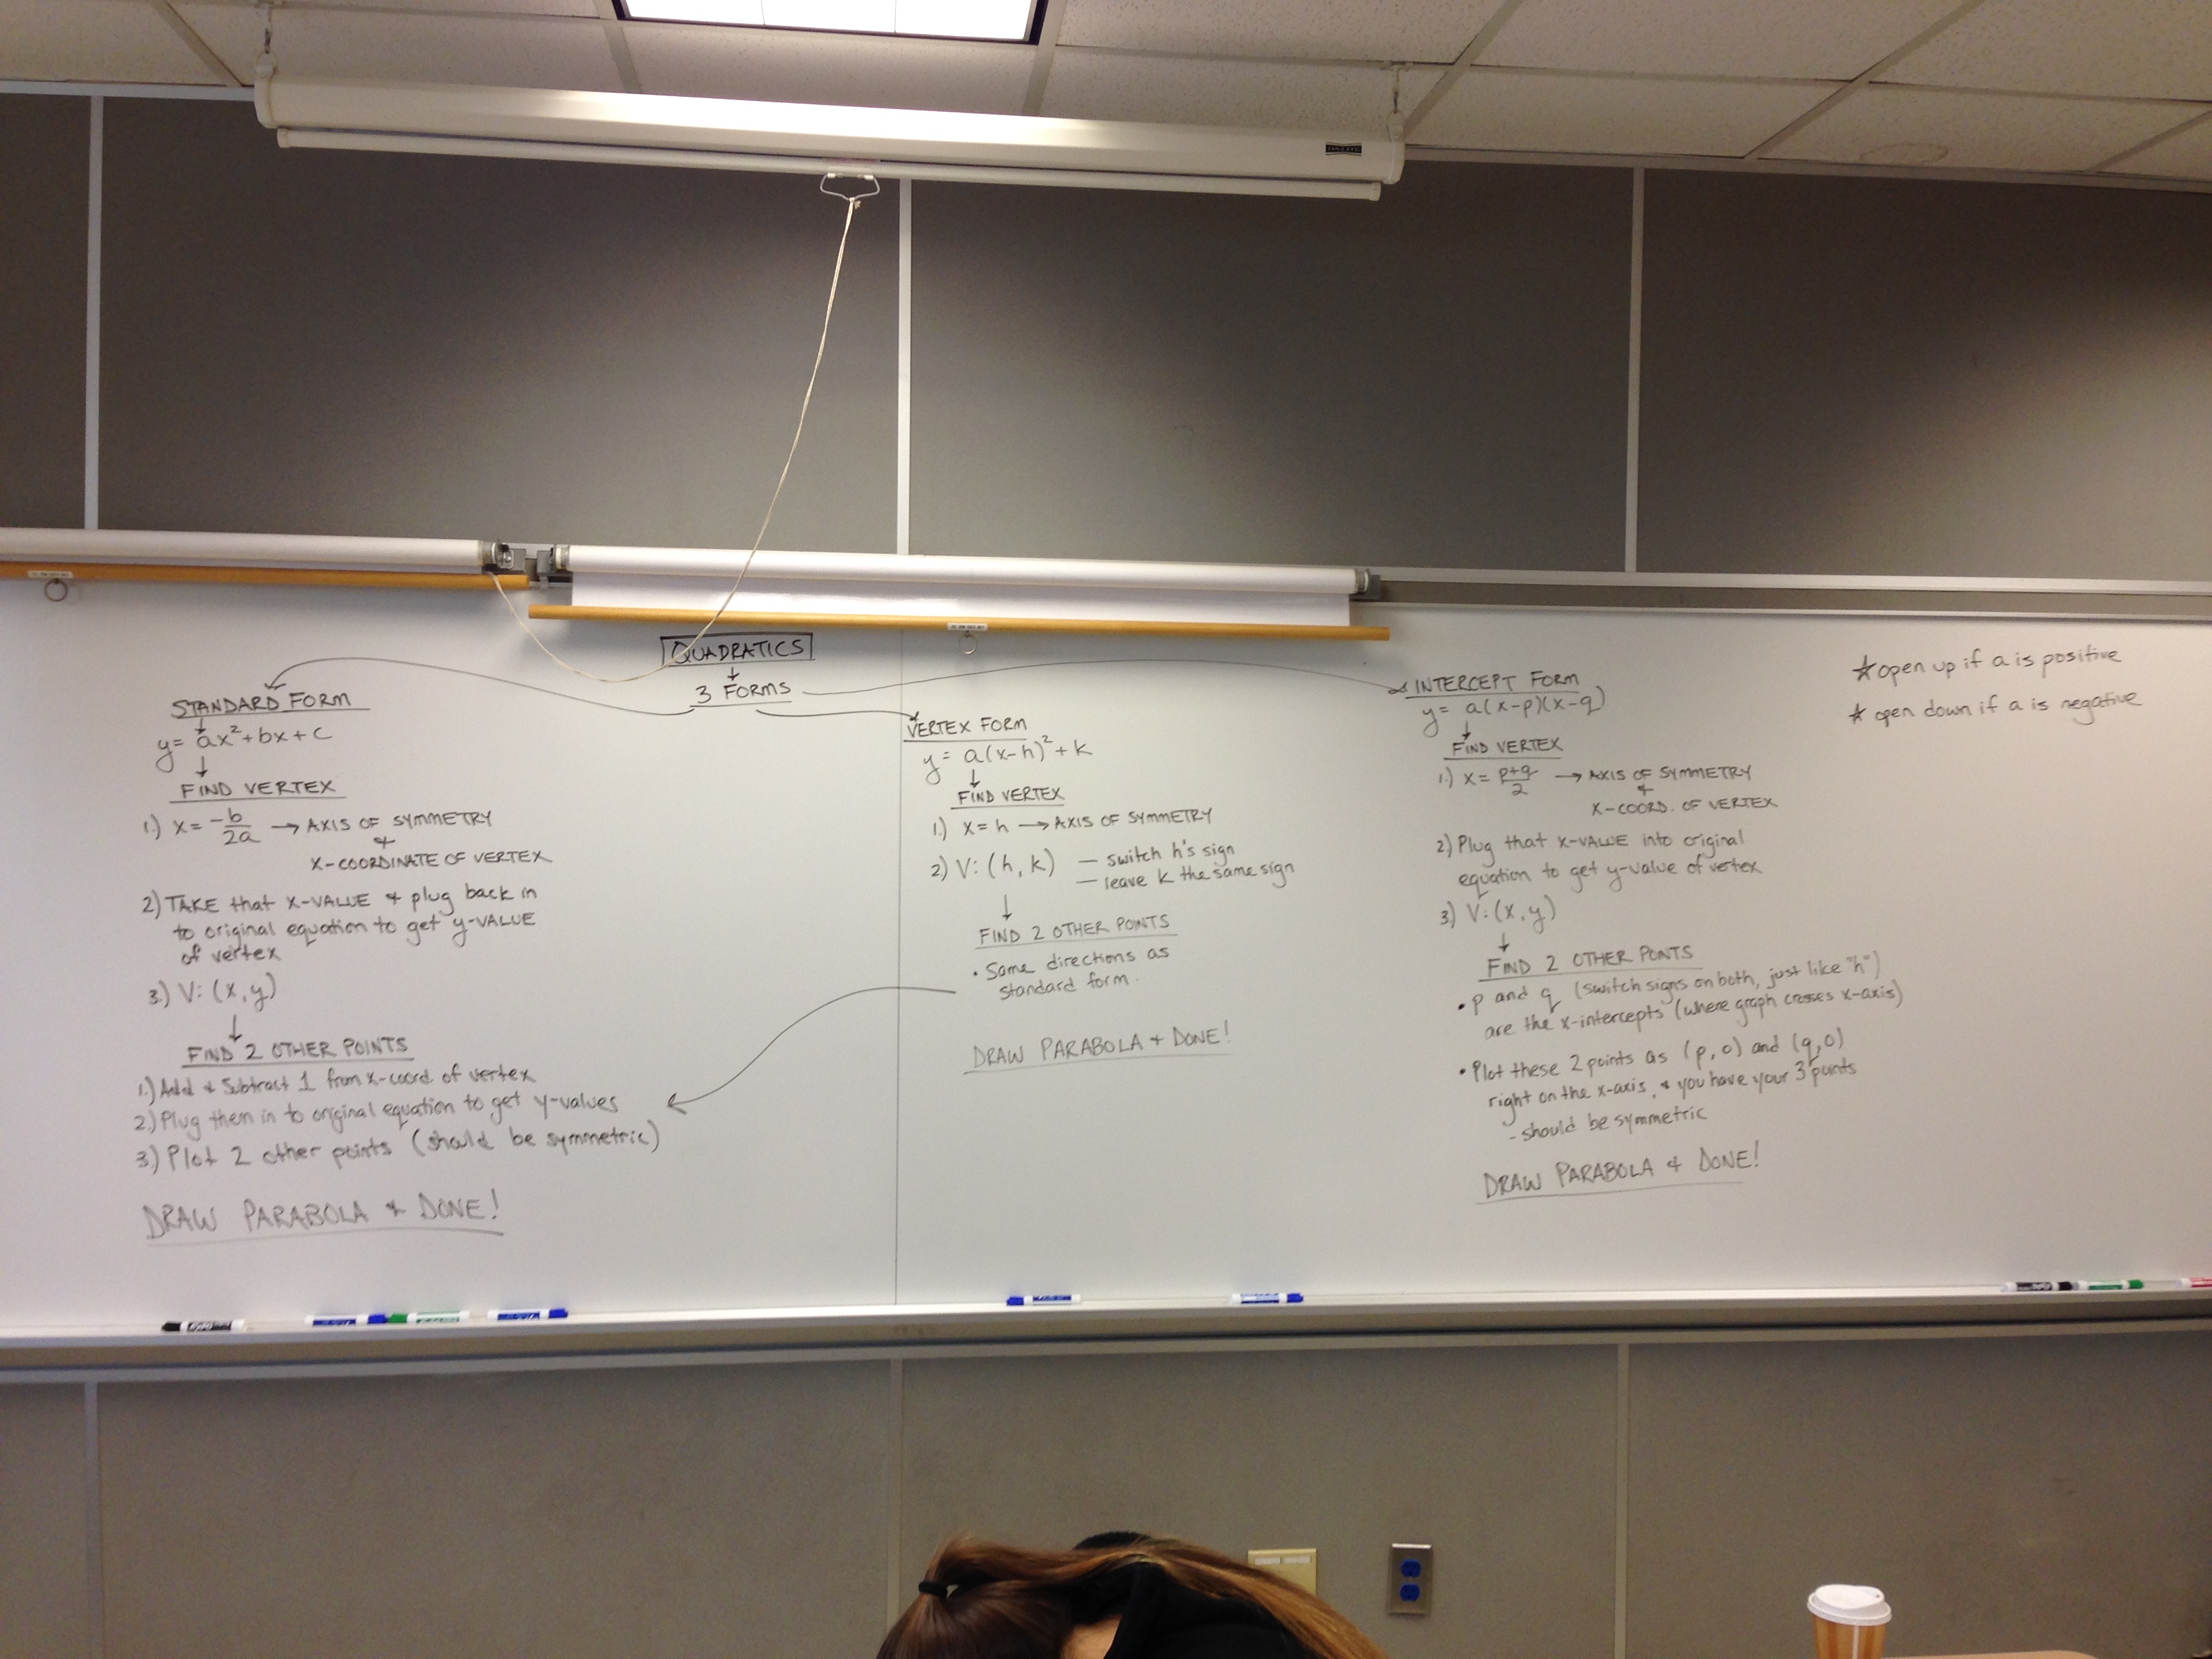 QUADRATICS
3 FORMS
STANDARD FORM
y = ax² + bx + c
FIND VERTEX
1.) x = -b/2a → AXIS OF SYMMETRY
&
X-COORDINATE OF VERTEX
2) TAKE that X-VALUE & plug back in
to original equation to get y-VALUE
of vertex
3.) V: (x, y)
FIND 2 OTHER POINTS
1.) Add & Subtract 1 from x-coord of vertex
2.) Plug them in to original equation to get y-values
3.) Plot 2 other points (should be symmetric)
DRAW PARABOLA & DONE!
VERTEX FORM
y = a(x-h)² + k
FIND VERTEX
1.) x = h → AXIS OF SYMMETRY
2) V: (h, k) — switch h's sign
— leave k the same sign
FIND 2 OTHER POINTS
• Same directions as
standard form.
DRAW PARABOLA & DONE!
INTERCEPT FORM
y = a(x-p)(x-q)
FIND VERTEX
1.) x = p+q/2 → AXIS OF SYMMETRY
&
X-COORD. OF VERTEX
2) Plug that X-VALUE into original
equation to get y-value of vertex
3.) V: (x, y)
FIND 2 OTHER PONTS
• p and q (switch signs on both, just like "h")
are the x-intercepts (where graph crosses x-axis)
• Plot these 2 points as (p, 0) and (q, 0)
right on the x-axis, & you have your 3 points
- should be symmetric
DRAW PARABOLA & DONE!
☆ open up if a is positive
☆ open down if a is negative